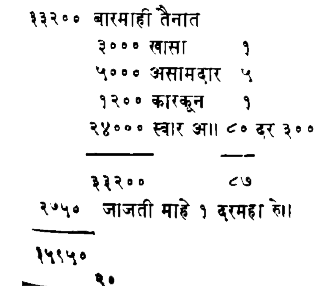 ३३२०० बारमाही तैनात
३००० खासा १
५००० असामदार ५
१२०० कारकून १
२४००० स्वार अ॥ ८० दर ३००
३३२०० ८७
२७५० जाजती माहे १ दरमहा रु॥
३५९५०
२०